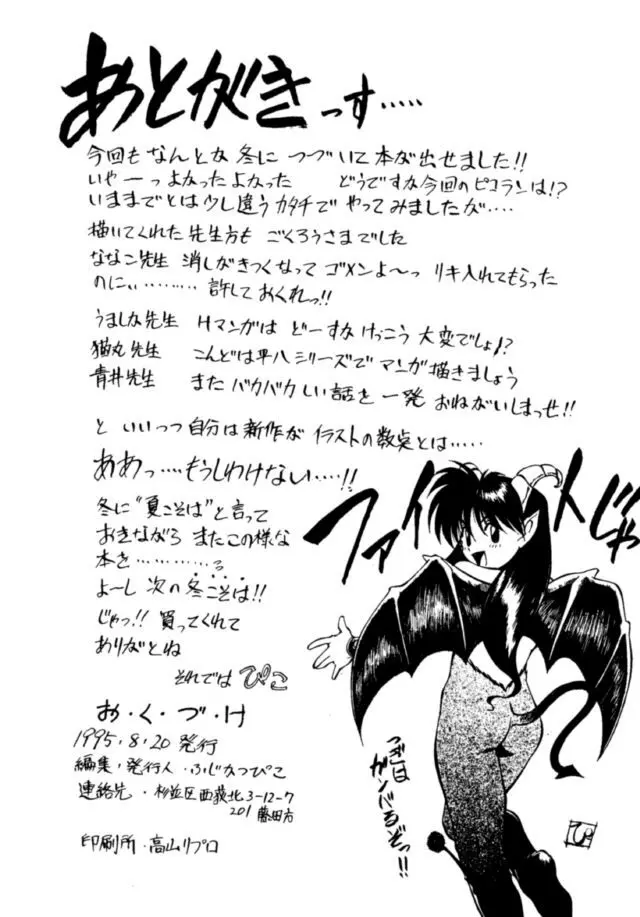 あとがきっす‥‥‥
今回もなんとな冬につづいて本が出せました!!
いやーっよかったよかった どうですな今回のピコランは!?
いままでとは少し違うカタチでやってみましたが‥‥
描いてくれた先生方も ごくろうさまでした
ななこ先生 消しがきつくなって ゴメンよ〜っ リキ入れてもらった
のにぃ‥‥‥‥ 許しておくれっ!!
うましな先生 Hマンガは どーすな けっこう 大変でしょ!?
猫丸先生 こんどは平八シリーズで マンガ描きましょう
青井先生 また バカバカしい話を 一発 おねがいしまっせ!!
と いいつつ 自分は新作が イラストの数点とは‥‥‥
ああっ‥‥もうしわけない‥‥!!
冬に"夏こそは"と言って
おきながら またこの様な
本を‥‥‥‥‥‥る
よーし 次の冬こそは!!
じゃっ!! 買ってくれて
ありがとね
それでは ぴこ
お・く・づ・け
1995.8.20 発行
編集・発行人・ふじなつぴこ
連絡先・杉並区西荻北3-12-7
201 藤田方
印刷所・高山リプロ
ファイトじゃ
つぎは
ガンバるぞっ!!
ぴ